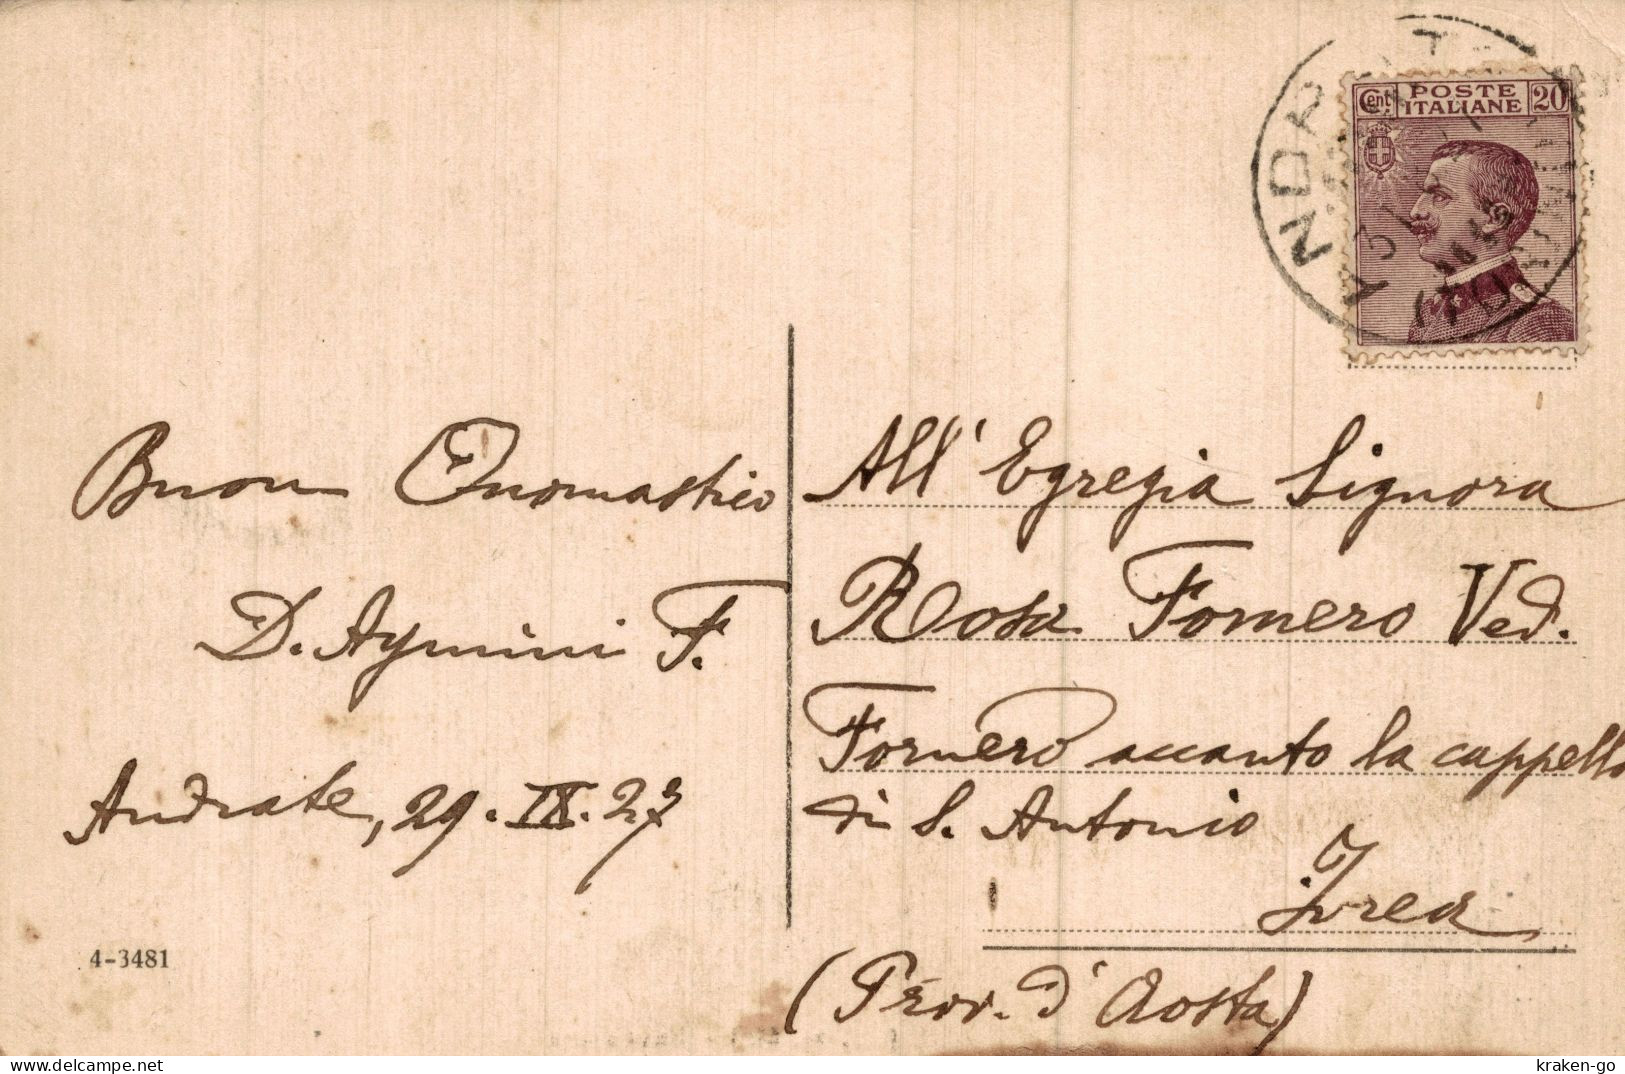 Cent POSTE ITALIANE 20
Buon Onomastico
D. Aymini F.
Andrate, 29.IX.27
4-3481
All' Egregia Signora
Rosa Fornero Ved.
Fornero accanto la cappella
di S. Antonio
Ivrea
(Prov. d'Aosta)
kraken-go